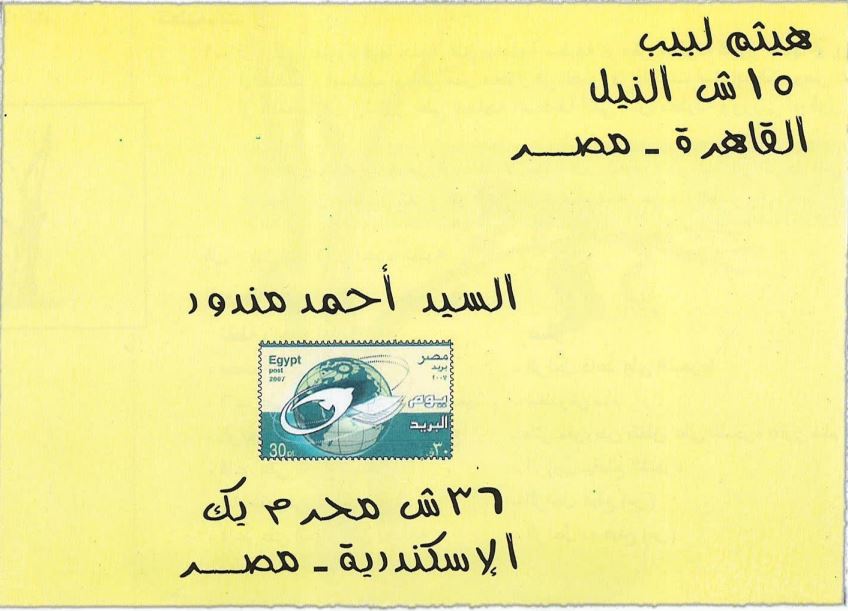 هيثم لبيب
١٥ ش النيل
القاهرة - مصر
السيد أحمد مندور
Egypt
post
2007
مصر
بريد
٢٠٠٧
يوم
البريد
30 pt.
٣٠ ق
٣٦ ش محرم بك
الإسكندرية - مصر